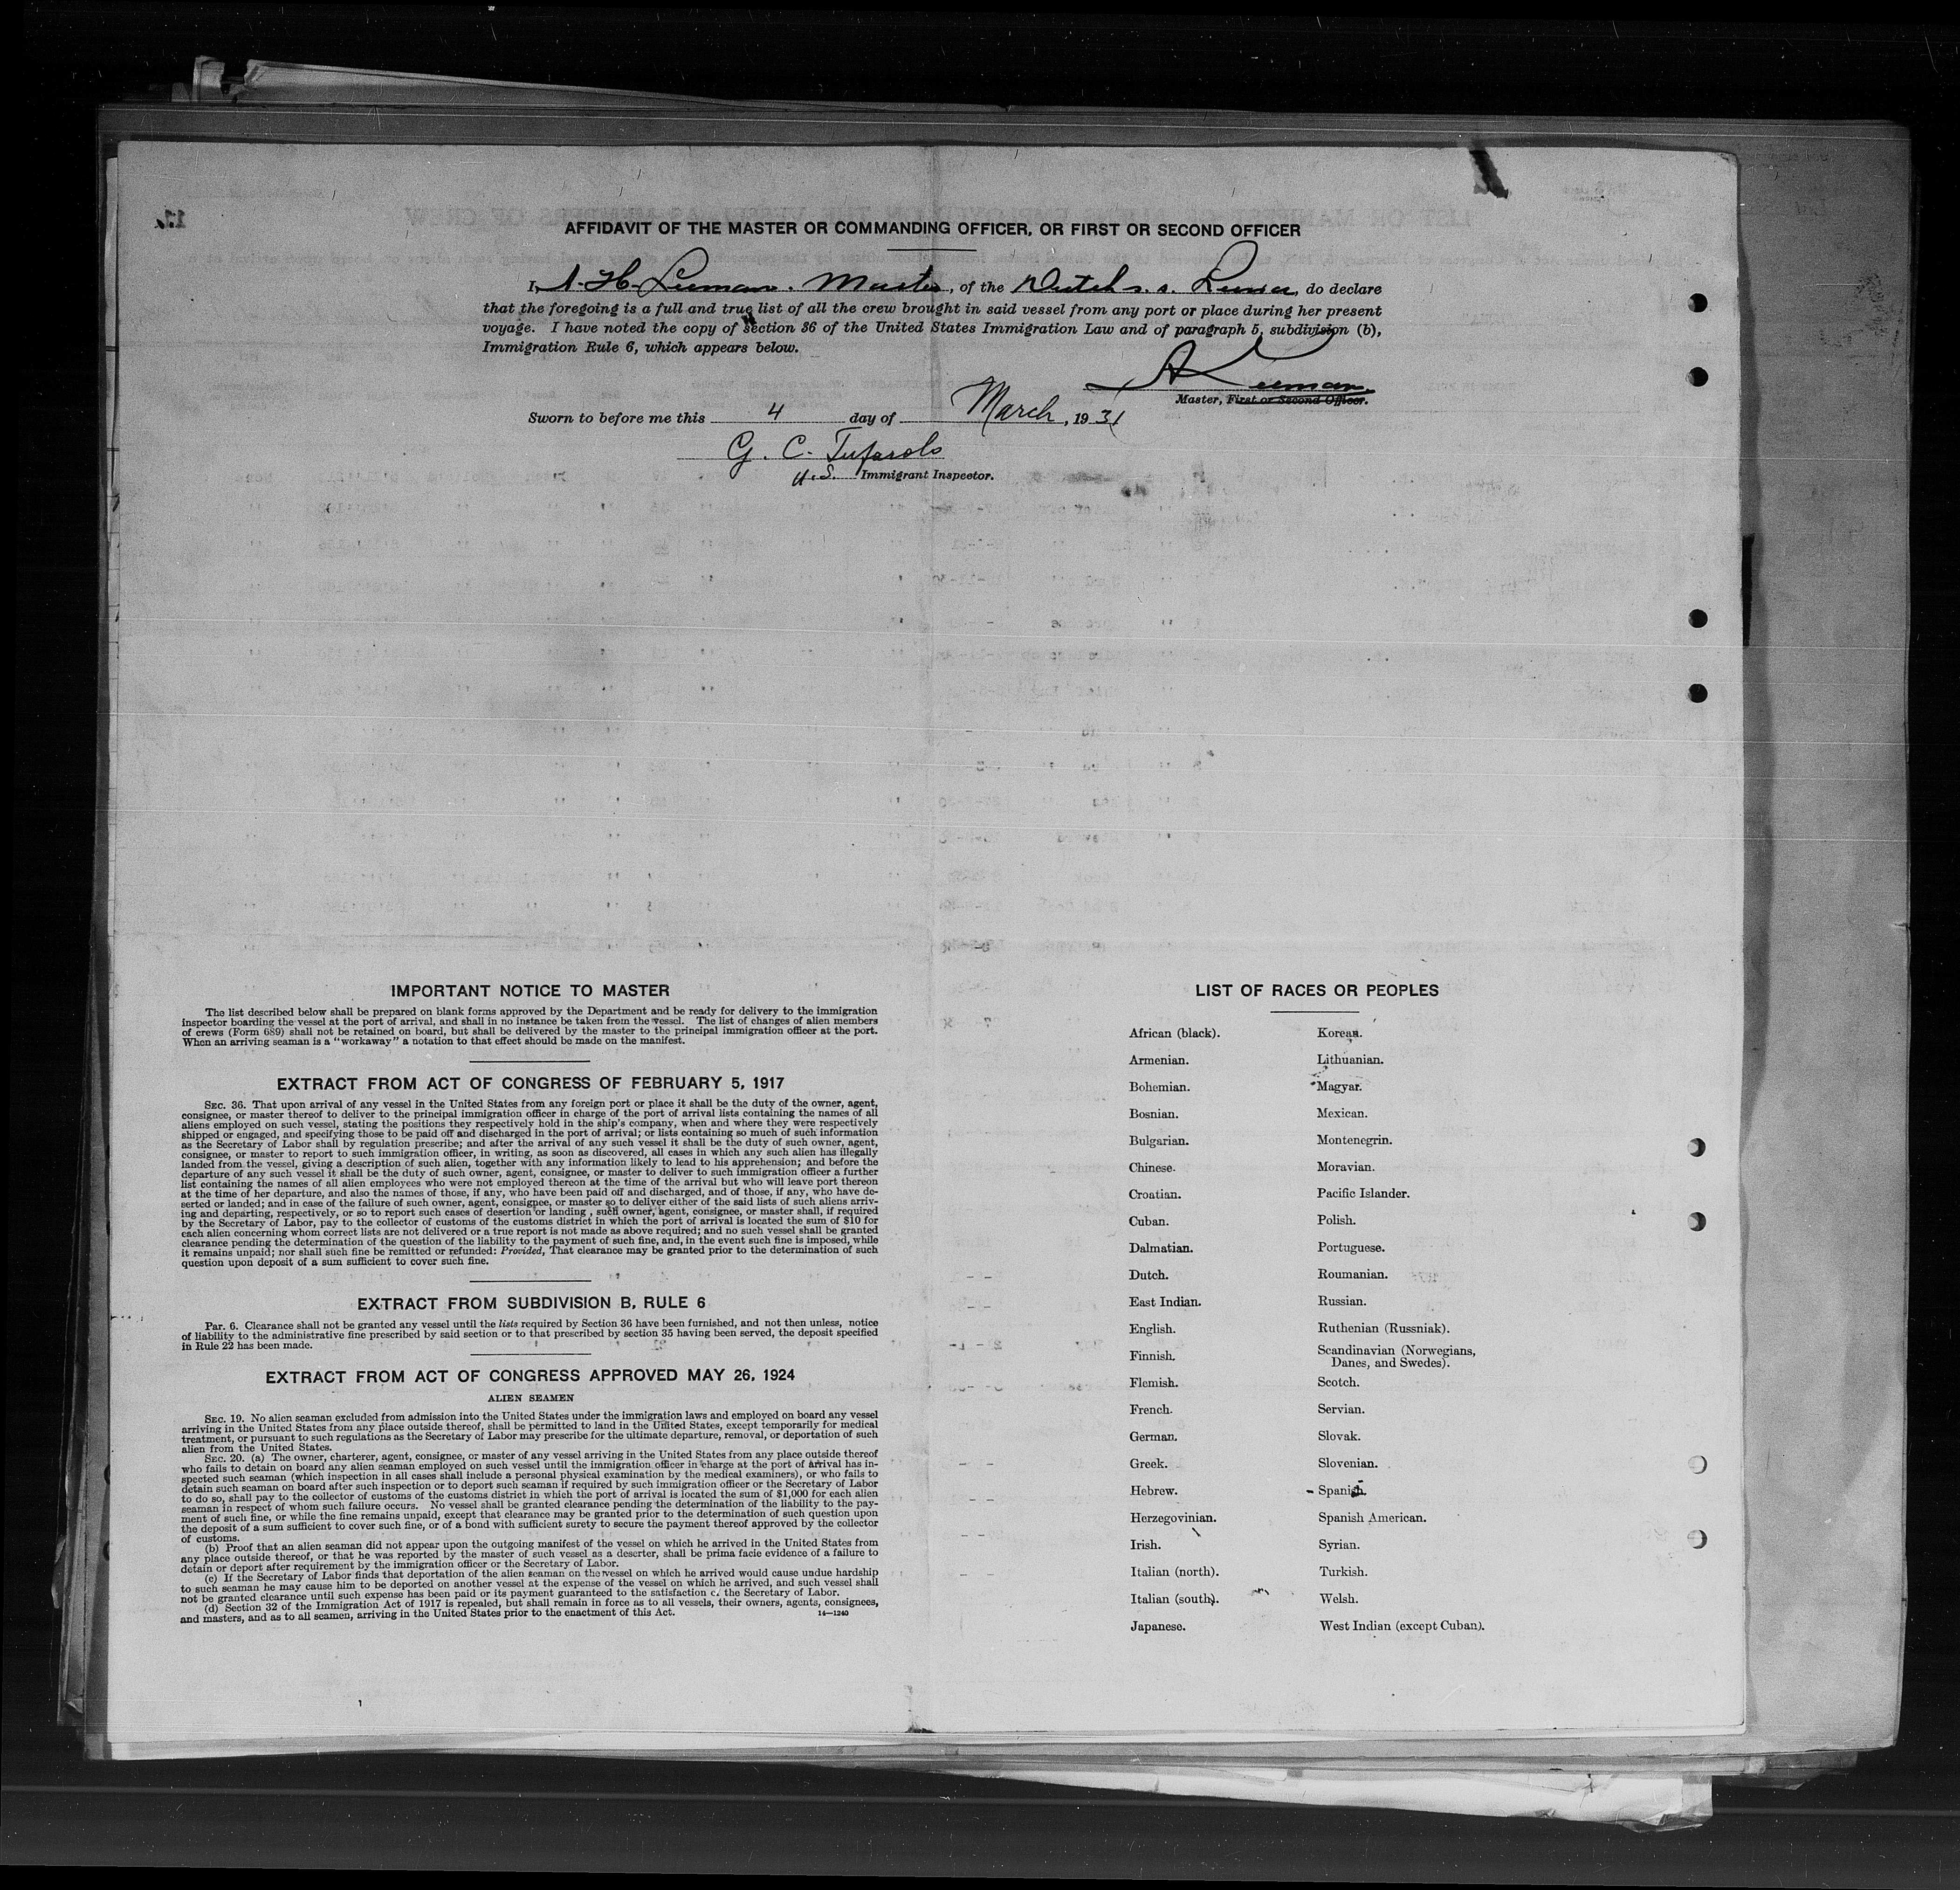 11.
AFFIDAVIT OF THE MASTER OR COMMANDING OFFICER, OR FIRST OR SECOND OFFICER
I, A. H. Leeman. Master, of the Dutch s. s. , do declare
that the foregoing is a full and true list of all the crew brought in said vessel from any port or place during her present
voyage. I have noted the copy of Section 36 of the United States Immigration Law and of paragraph 5, subdivision (b),
Immigration Rule 6, which appears below.
A Leeman.
Master, First or Second Officer.
Sworn to before me this 4 day of March, 1931
G. C. Tufarolo
U.S. Immigrant Inspector.
IMPORTANT NOTICE TO MASTER
The list described below shall be prepared on blank forms approved by the Department and be ready for delivery to the immigration
inspector boarding the vessel at the port of arrival, and shall in no instance be taken from the vessel. The list of changes of alien members
of crews (Form 689) shall not be retained on board, but shall be delivered by the master to the principal immigration officer at the port.
When an arriving seaman is a "workaway" a notation to that effect should be made on the manifest.
EXTRACT FROM ACT OF CONGRESS OF FEBRUARY 5, 1917
SEC. 36. That upon arrival of any vessel in the United States from any foreign port or place it shall be the duty of the owner, agent,
consignee, or master thereof to deliver to the principal immigration officer in charge of the port of arrival lists containing the names of all
aliens employed on such vessel, stating the positions they respectively hold in the ship's company, when and where they were respectively
shipped or engaged, and specifying those to be paid off and discharged in the port of arrival; or lists containing so much of such information
as the Secretary of Labor shall by regulation prescribe; and after the arrival of any such vessel it shall be the duty of such owner, agent,
consignee, or master to report to such immigration officer, in writing, as soon as discovered, all cases in which any such alien has illegally
landed from the vessel, giving a description of such alien, together with any information likely to lead to his apprehension; and before the
departure of any such vessel it shall be the duty of such owner, agent, consignee, or master to deliver to such immigration officer a further
list containing the names of all alien employees who were not employed thereon at the time of the arrival but who will leave port thereon
at the time of her departure, and also the names of those, if any, who have been paid off and discharged, and of those, if any, who have de-
serted or landed; and in case of the failure of such owner, agent, consignee, or master so to deliver either of the said lists of such aliens arriv-
ing and departing, respectively, or so to report such cases of desertion or landing, such owner, agent, consignee, or master shall, if required
by the Secretary of Labor, pay to the collector of customs of the customs district in which the port of arrival is located the sum of $10 for
each alien concerning whom correct lists are not delivered or a true report is not made as above required; and no such vessel shall be granted
clearance pending the determination of the question of the liability to the payment of such fine, and, in the event such fine is imposed, while
it remains unpaid; nor shall such fine be remitted or refunded: Provided, That clearance may be granted prior to the determination of such
question upon deposit of a sum sufficient to cover such fine.
EXTRACT FROM SUBDIVISION B, RULE 6
Par. 6. Clearance shall not be granted any vessel until the lists required by Section 36 have been furnished, and not then unless, notice
of liability to the administrative fine prescribed by said section or to that prescribed by section 35 having been served, the deposit specified
in Rule 22 has been made.
EXTRACT FROM ACT OF CONGRESS APPROVED MAY 26, 1924
ALIEN SEAMEN
SEC. 19. No alien seaman excluded from admission into the United States under the immigration laws and employed on board any vessel
arriving in the United States from any place outside thereof, shall be permitted to land in the United States, except temporarily for medical
treatment, or pursuant to such regulations as the Secretary of Labor may prescribe for the ultimate departure, removal, or deportation of such
alien from the United States.
SEC. 20. (a) The owner, charterer, agent, consignee, or master of any vessel arriving in the United States from any place outside thereof
who fails to detain on board any alien seaman employed on such vessel until the immigration officer in charge at the port of arrival has in-
spected such seaman (which inspection in all cases shall include a personal physical examination by the medical examiners), or who fails to
detain such seaman on board after such inspection or to deport such seaman if required by such immigration officer or the Secretary of Labor
to do so, shall pay to the collector of customs of the customs district in which the port of arrival is located the sum of $1,000 for each alien
seaman in respect of whom such failure occurs. No vessel shall be granted clearance pending the determination of the liability to the pay-
ment of such fine, or while the fine remains unpaid, except that clearance may be granted prior to the determination of such question upon
the deposit of a sum sufficient to cover such fine, or of a bond with sufficient surety to secure the payment thereof approved by the collector
of customs.
(b) Proof that an alien seaman did not appear upon the outgoing manifest of the vessel on which he arrived in the United States from
any place outside thereof, or that he was reported by the master of such vessel as a deserter, shall be prima facie evidence of a failure to
detain or deport after requirement by the immigration officer or the Secretary of Labor.
(c) If the Secretary of Labor finds that deportation of the alien seaman on the vessel on which he arrived would cause undue hardship
to such seaman he may cause him to be deported on another vessel at the expense of the vessel on which he arrived, and such vessel shall
not be granted clearance until such expense has been paid or its payment guaranteed to the satisfaction of the Secretary of Labor.
(d) Section 32 of the Immigration Act of 1917 is repealed, but shall remain in force as to all vessels, their owners, agents, consignees,
and masters, and as to all seamen, arriving in the United States prior to the enactment of this Act.
14—1240
LIST OF RACES OR PEOPLES
African (black).
Armenian.
Bohemian.
Bosnian.
Bulgarian.
Chinese.
Croatian.
Cuban.
Dalmatian.
Dutch.
East Indian.
English.
Finnish.
Flemish.
French.
German.
Greek.
Hebrew.
Herzegovinian.
Irish.
Italian (north).
Italian (south).
Japanese.
Korean.
Lithuanian.
Magyar.
Mexican.
Montenegrin.
Moravian.
Pacific Islander.
Polish.
Portuguese.
Roumanian.
Russian.
Ruthenian (Russniak).
Scandinavian (Norwegians,
Danes, and Swedes).
Scotch.
Servian.
Slovak.
Slovenian.
Spanish.
Spanish American.
Syrian.
Turkish.
Welsh.
West Indian (except Cuban).